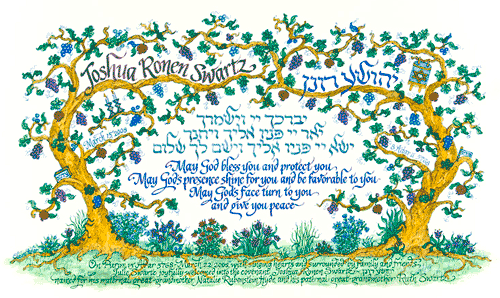 Joshua Ronen Swartz
יהושע רונן
יברכך יי וישמרך
יאר יי פניו אליך ויחנך
ישא יי פניו אליך וישם לך שלום
May God bless you and protect you
May Gods presence shine for you and be favorable to you
May Gods face turn to you
and give you peace
On 15 5768 ~ March 22, with singing hearts and surrounded by family and friends
Julie Swartz joyfully welcomed into the covenant Joshua Ronen Swartz ~
Named for his maternal great-grandmother Natalie and his paternal great-grandmother Ruth Swartz